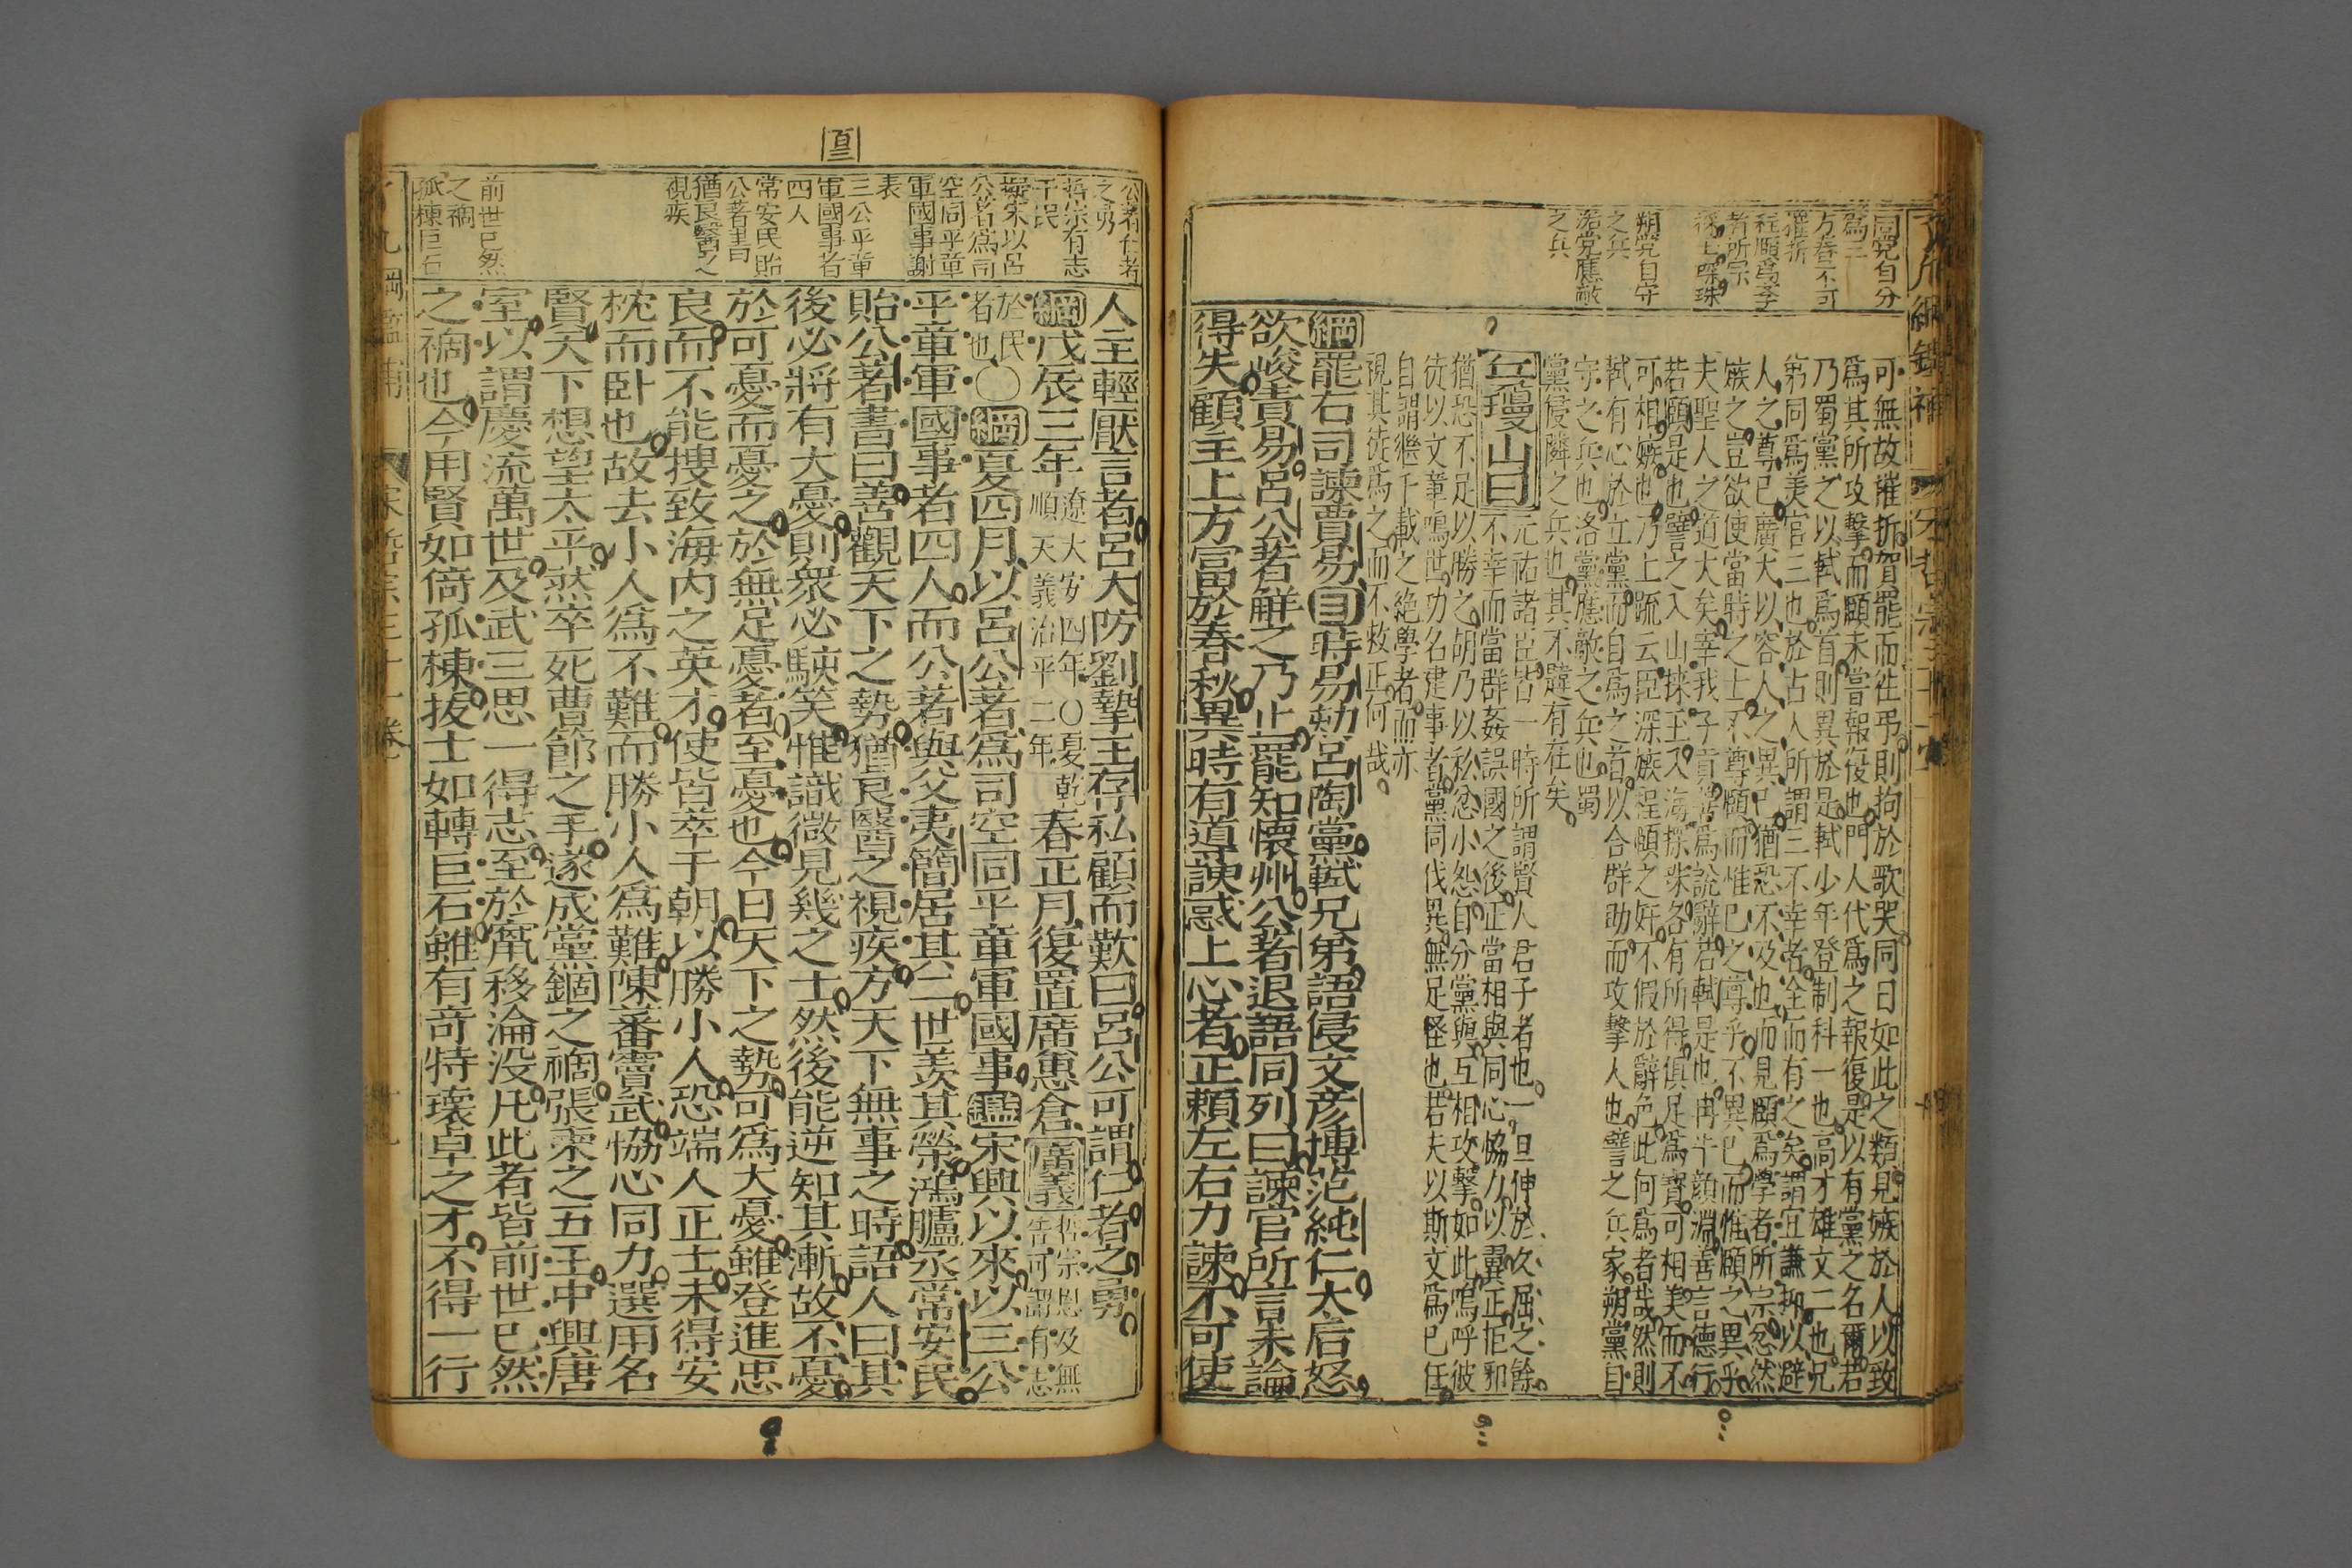 同党自分
為三
方春不可
摧折
程頤為学
者所宗
朔党自守
之兵
洛党應敵
之兵
可無故摧折賀罷而徃弔則拘於歌哭同日如此之類見嫉於人以致
為其所攻擊而頤未嘗報復也門人代為之報復是以有黨之名爾若
乃蜀黨之以軾為首則異於是軾少年登制科一也高才雄文二也兄
弟同為美官三也於古人所謂三不幸者全而有之矣謂宜謙抑以避
人之尊已廣大以容人之異已猶恐不及也而見頤為學者所宗忿然
嫉之豈欲使當時之士不尊頤而惟已之尊乎不異已而惟頤之異乎
夫聖人之道大矣宰我子貢善為說辭若軾是也冉牛顔淵善言德行
若頤是也譬之入山採玉入海探珠各有所得俱足為寳可相美而不
可相嫉也乃上疏云臣深嫉程頤之奸不假於辭色此何為者哉然則
軾有心於立黨而自為之首以合群助而攻擊人也譬之兵家朔黨自
守之兵也洛黨應敵之兵也蜀
黨侵隣之兵也其不韙有在矣
丘瓊山曰
元祐諸臣皆一時所謂賢人君子者也一旦伸於久屈之餘
不幸而當群姦誤國之後正當相與同心恊力以翼正拒邪
猶恐不足以勝之胡乃以私忿小怨自分黨與互相攻擊如此嗚呼彼
徒以文章鳴世功名建事者黨同伐異無足怪也若夫以斯文為已任
自謂繼千載之絶學者而亦
視其徒為之而不救正何哉
綱罷右司諫賈易目時易劾呂陶黨軾兄弟語侵文彦博范純仁太后怒
欲峻責易呂公著觧之乃止罷知懷州公著退語同列曰諫官所言未論
得失顧主上方富於春秋異時有道諛惑上心者正頼左右力諫不可使
公著仁者
之勇
哲宗有志
于民
擬宋以呂
公著為司
空同平章
軍國事謝
表
三公平章
軍國事者
四人
常安民貽
公著書曰
猶良醫之
視疾
前世已然
之禍
孤棟巨石
人主輕厭言者呂大防劉摯王存私顧而歎曰呂公可謂仁者之勇
綱戊辰三年遼大安四年○夏乾順天義治平二年春正月復置廣惠倉廣義哲宗恩及無告可謂有志
於民者也○綱夏四月以呂公著為司空同平章軍國事鑑宋興以來以三公
平章軍國事者四人而公著與父夷簡居其二世羨其榮鴻臚丞常安民
貽公著書曰善觀天下之勢猶良醫之視疾方天下無事之時語人曰其
後必將有大憂則衆必駭笑惟識微見幾之士然後能逆知其漸故不憂
於可憂而憂之於無足憂者至憂也今日天下之勢可為大憂雖登進忠
良而不能搜致海内之英才使皆萃于朝以勝小人恐端人正士未得安
枕而卧也故去小人為不難而勝小人為難陳蕃竇武恊心同力選用名
賢天下想望太平然卒死曹節之手遂成黨錮之禍張柬之五王中興唐
室以謂慶流萬世及武三思一得志至於竄移淪没凡此者皆前世已然
之禍也今用賢如倚孤棟拔士如轉巨石雖有奇特瓌卓之才不得一行